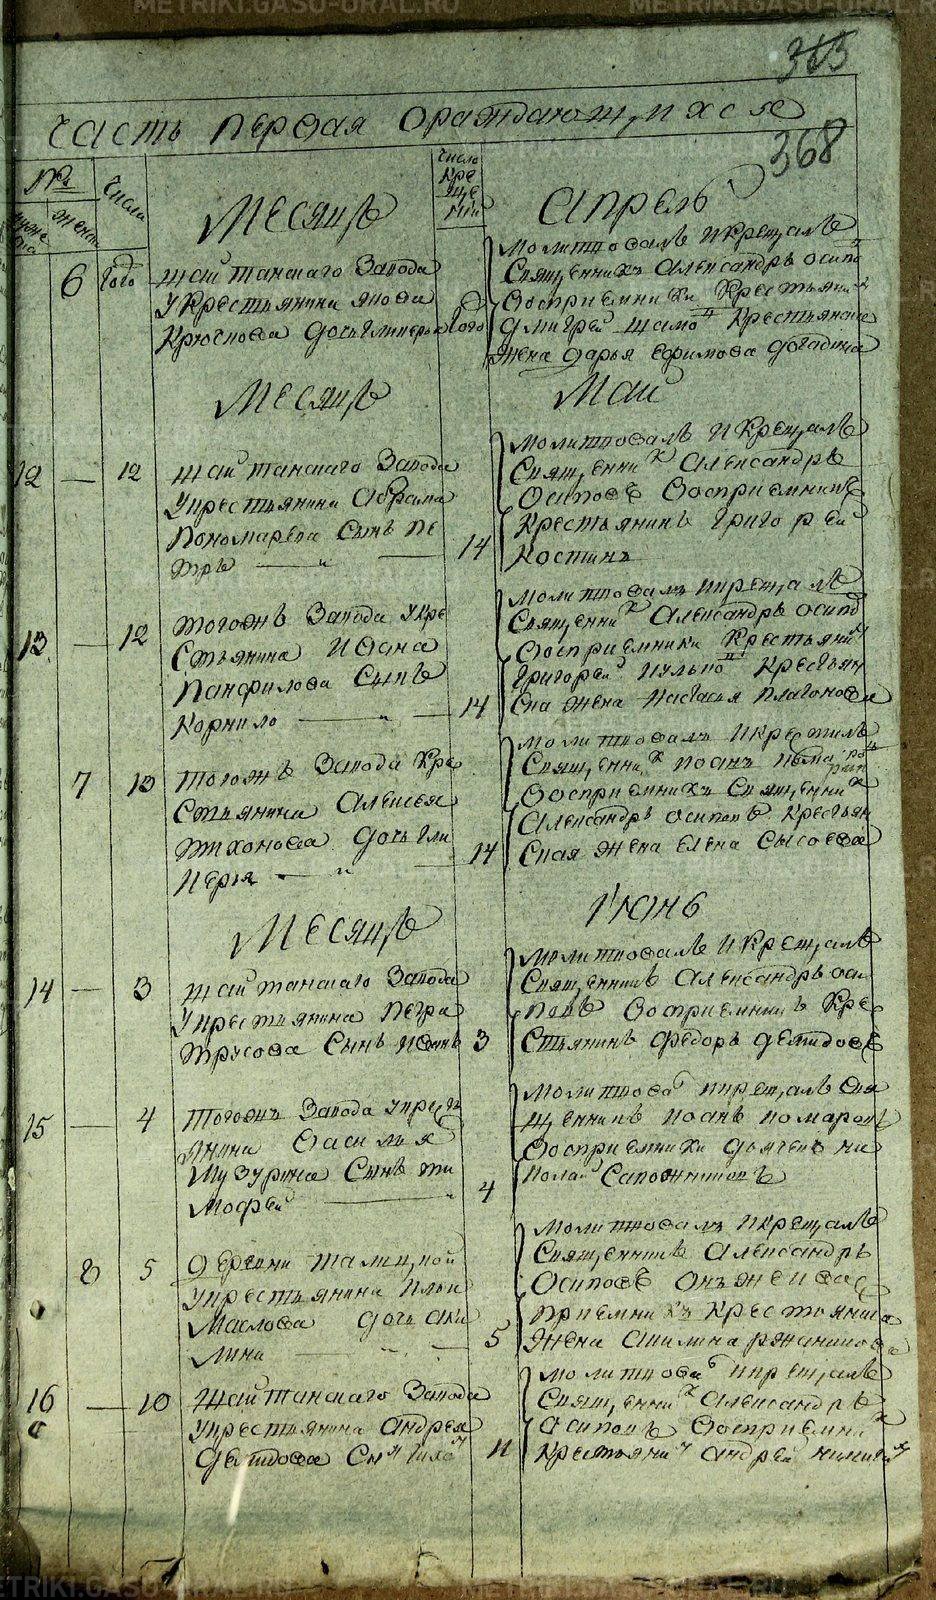 METRIKI.GASO-URAL.RU
METRIKI.GASO-URAL.RU
363
Часть первая ораждающихсе
368
№
Числа
Мужеска
Женск
Число крещения
Месяцъ
Апрель
6
того
Шайтанскаго Завода
у Крестьянина Якова
Крючкова дочь Гликерья
того
молитвовалъ и Крещалъ
Священникъ Александръ осипо
Восприемники Крестьянинъ
дмитрей Крестьянска
жена дарья ефимова
Месяцъ
Май
12
12
Шайтанскаго Завода
у крестьянина Абрама
Пономарева Сынъ Пе
тръ
14
молитвовалъ и Крещалъ
Священникъ Александръ
Осиповъ Восприемникъ
Крестьянинъ григорей
Костинъ
13
12
тогожъ Завода у кре
стьянина Ивана
Панфилова Сынъ
Корнило
14
молитвовалъ и крещалъ
Священникъ Александръ осипо
Восприемники Крестьянинъ
григорей Крестьян
ска жена настасья платонова
7
13
тогожъ Завода Кре
стьянина Алексея
тихонова дочь гли
керья
14
молитвовалъ и крестилъ
Священникъ Иоанъ
Восприемникъ Священникъ
Александръ осиповъ Крестьян
ская жена елена Сысоева
Месяцъ
Июнь
14
3
Шайтанскаго Завода
у крестьянина Петра
трусова Сынъ Иванъ
3
молитвовалъ и Крещалъ
Священникъ Александръ оси
повъ Восприемникъ Кре
стьянинъ федоръ демидовъ
15
4
тогожъ Завода у крестьянина
Василья
Мизурина Сынъ ти
мофей
4
молитвова и крещалъ Свя
щенникъ Иоанъ
Восприемники дьячекъ ни
колай Сапожниковъ
8
5
деревни талицкой
у крестьянина Ильи
Маслова дочь аки
лина
5
молитвовалъ и Крещалъ
Священникъ Александръ
Осиповъ онъ же и вос
приемникъ крестьянска
жена акилина
16
10
Шайтанскаго Завода
у крестьянина Андрея
демидова Сынъ
11
молитвова и крещалъ
Священникъ Александръ
Осиповъ Восприемни
Крестьянинъ андрей никитинъ
METRIKI.GASO-URAL.RU
METRIKI.GASO-URAL.RU